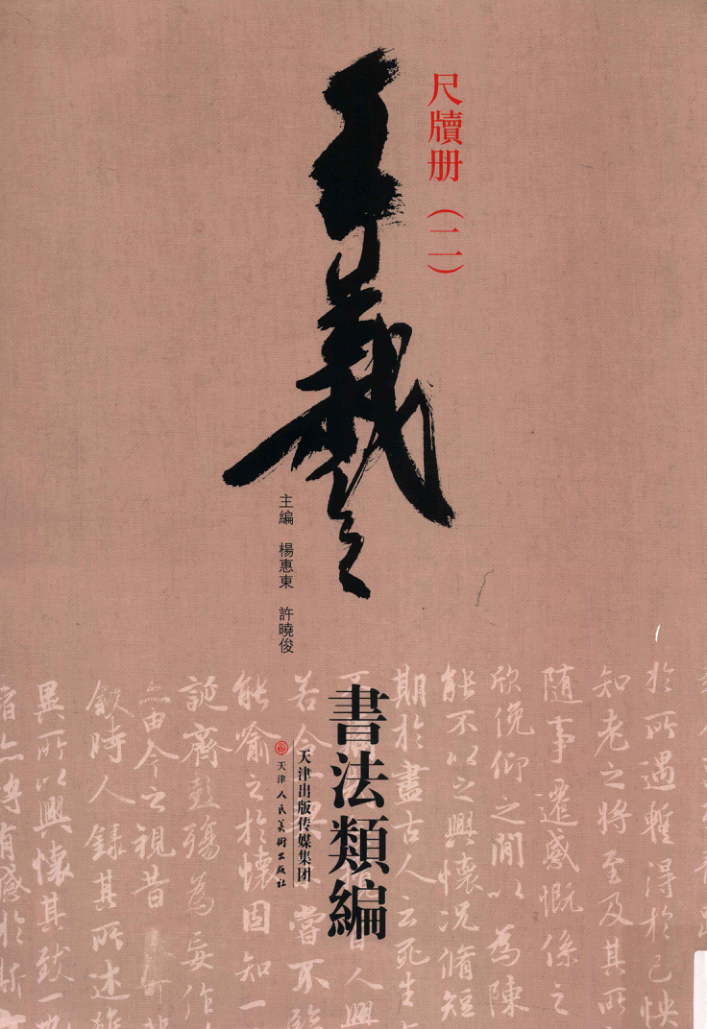 尺牘册（二）
王羲之
主編 楊惠東 許曉俊
書法類編
天津出版传媒集团
天津人民美術出版社
於所遇暫得於己怏
知老之將至及其所
隨事遷感慨係之
欣俛仰之間以為陳
能不以之興懷況脩短
期於盡古人云死生
能喻之於懷固知一
誕齊彭殤為妄作
由今之視昔
敘時人錄其所述
異所以興懷其致一
將有感於斯